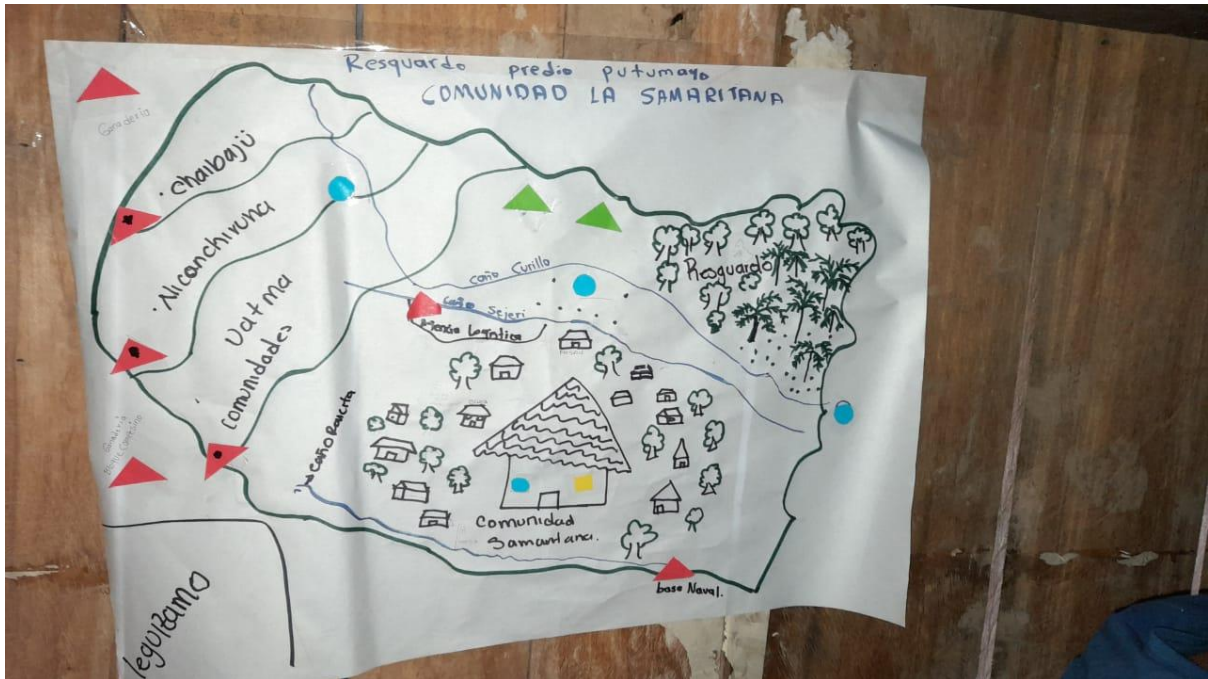 Resguardo predio putumayo
COMUNIDAD LA SAMARITANA
Ganadería
. Chaibajü
. Nicanchiruna
Uatma
Comunidades
caño Curillo
caño Sejeri
Agencia Logística
Resguardo
Ganadería
Caño Rancita
Comunidad
Samaritana.
base Naval.
leguizamo